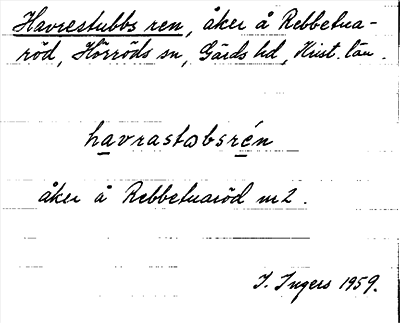 Havrestubbs ren, åker å Rebbetua-
röd, Hörröds sn, Gärds hd, Krist. län.
havrastobsrén
åker å Rebbetuaröd nr 2.
I. Ingers 1959.